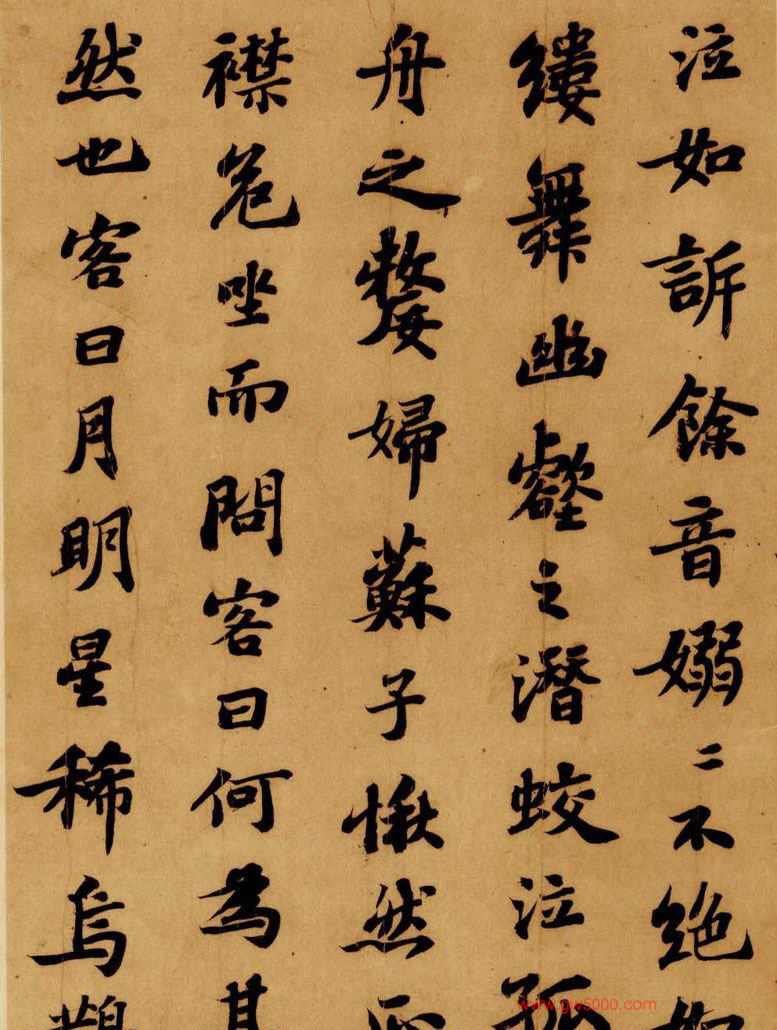 泣如訴餘音嫋〻不絕如
縷舞幽壑之潛蛟泣孤
舟之嫠婦蘇子愀然正
襟危坐而問客曰何為其
然也客曰月明星稀烏鵲
www.gw5000.com